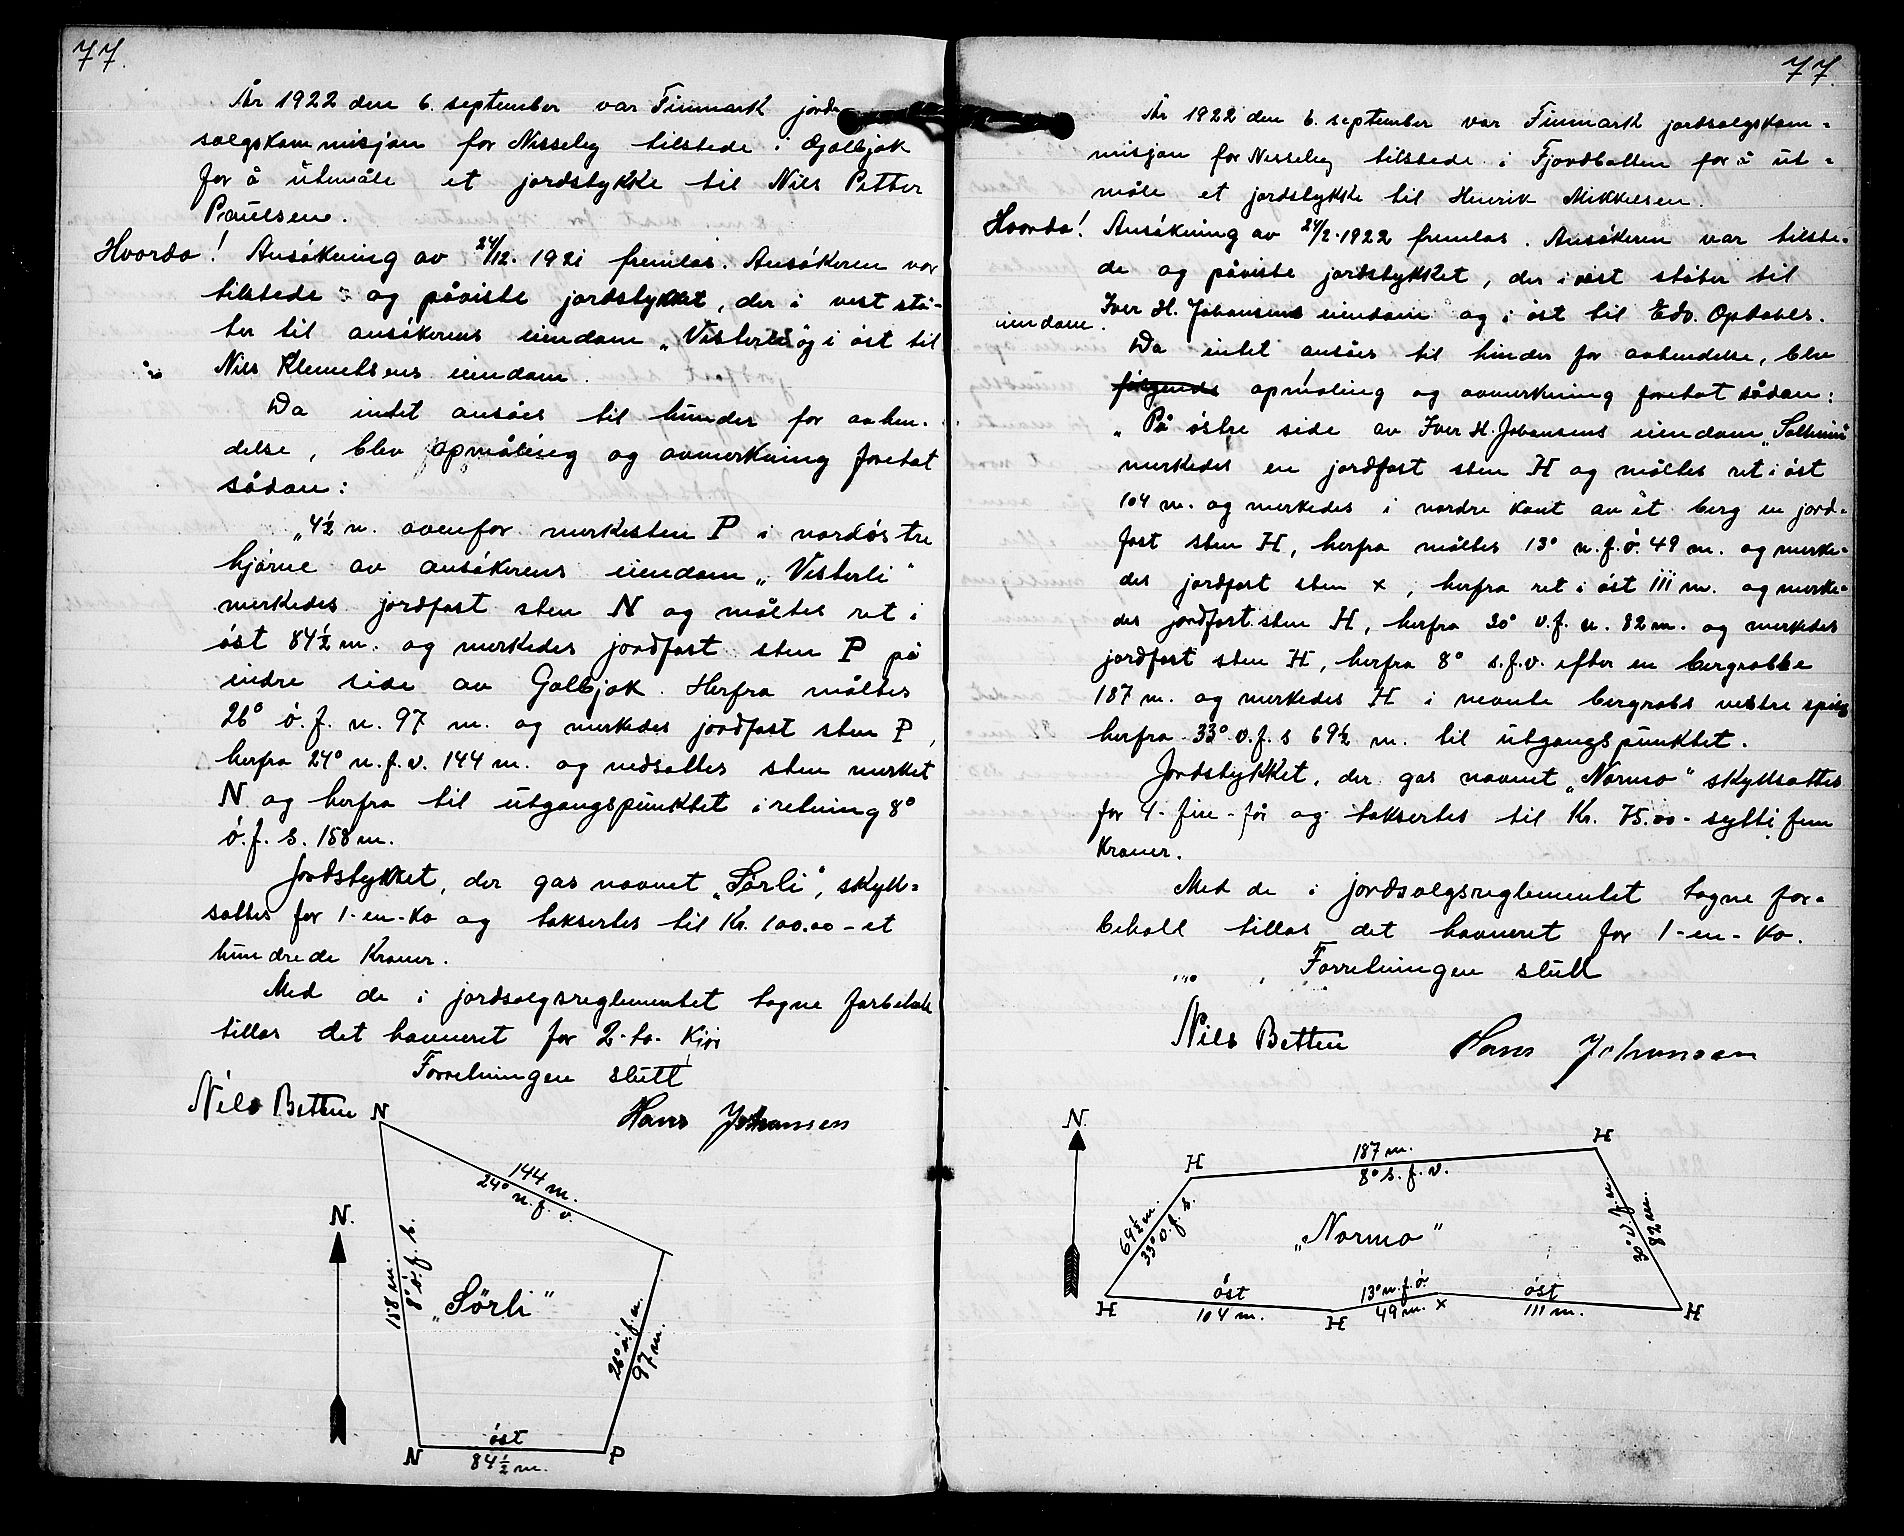 77.
År 1922 den 6. september var Finmark jord-
salgskommisjon for Nesseby tilstede i
for å utmåle et jordstykke til Nils Petter
Paulsen.
Hvorda! Ansökning av 24/12. 1921 fremlas. Ansökeren var
tilstede og påviste jordstykket, der i vest stö-
ter til ansökerens eiendom „Vesterli" og i öst til
Nils Klemetsens eiendom.
Da intet ansåes til hinder for avhen-
delse, blev opmåling og avmerkning foretat
sådan:
„4½ m. ovenfor merkesten P i nordöstre
hjörne av ansökerens eiendom „Vesterli"
merkedes jordfast sten N og måltes ret i
öst 84½ m. og merkedes jordfast sten P på
indre side av Galbjok. Herfra måltes
26° ö. f. n. 97 m. og merkedes jordfast sten P,
herfra 24° n. f. v. 144 m. og nedsattes sten merket
N og herfra til utgangspunktet i retning 8°
ö. f. s. 158 m.
Jordstykket, der gas navnet „Sörli", skyld-
sattes for 1-en-ko og taksertes til Kr. 100.00 - et
hundrede Kroner.
Med de i jordsalgsreglementet tagne forbehold
tillas det havneret for 2-to- Kjör
Forretningen slutt
Nils Betten
Hans Johansen
N
144 m.
24° n. f. v.
N.
158 m.
8° ö. f. s.
„Sörli"
26° ö. f. n.
97 m.
N
öst
84½ m.
P
77.
År 1922 den 6. september var Finmark jordsalgskom-
misjon for Nesseby tilstede i Fjordbotten for å ut-
måle et jordstykke til Henrik Mikkelsen.
Hvorda! Ansökning av 24/2-1922 fremlas. Ansökeren var tilste-
de og påviste jordstykket, der i vest stöter til
Iver H. Johansens eiendom og i öst til Edv. Opdahls
eiendom.
Da intet ansåes til hinder for avhendelse, blev
følgende opmåling og avmerkning foretat sådan:
„På östre side av Iver H. Johansens eiendom
merkedes en jordfast sten H og måltes ret i öst
104 m. og merkedes i nordre kant av et berg en jord-
fast sten H, herfra måltes 13° n. f. ö. 49 m. og merke-
des jordfast sten x, herfra ret i öst 111 m. og merke-
des jordfast sten H, herfra 30° v. f. n. 82 m. og merkedes
jordfast sten H, herfra 8° s. f. v. efter en bergrabbe
187 m. og merkedes H i nevnte bergrabs vestre spiss
herfra 33° v. f. s 69½ m. til utgangspunktet.
Jordstykket, der gas navnet „Normo" skyldsattes
for 4-fire-får og taksertes til Kr. 75.00 - sytti fem
Kroner.
Med de i jordsalgsreglementet tagne for-
behold tillas det havneret for 1-en-ko.
Forretningen slutt
Nils Betten
Hans Johansen
N.
H
187 m.
8° s. f. v.
H
69½ m.
33° v. f. s.
„Normo"
30° v. f. n.
82 m.
H
öst
104 m.
H
13° n. f. ö.
49 m.
x
öst
111 m.
H